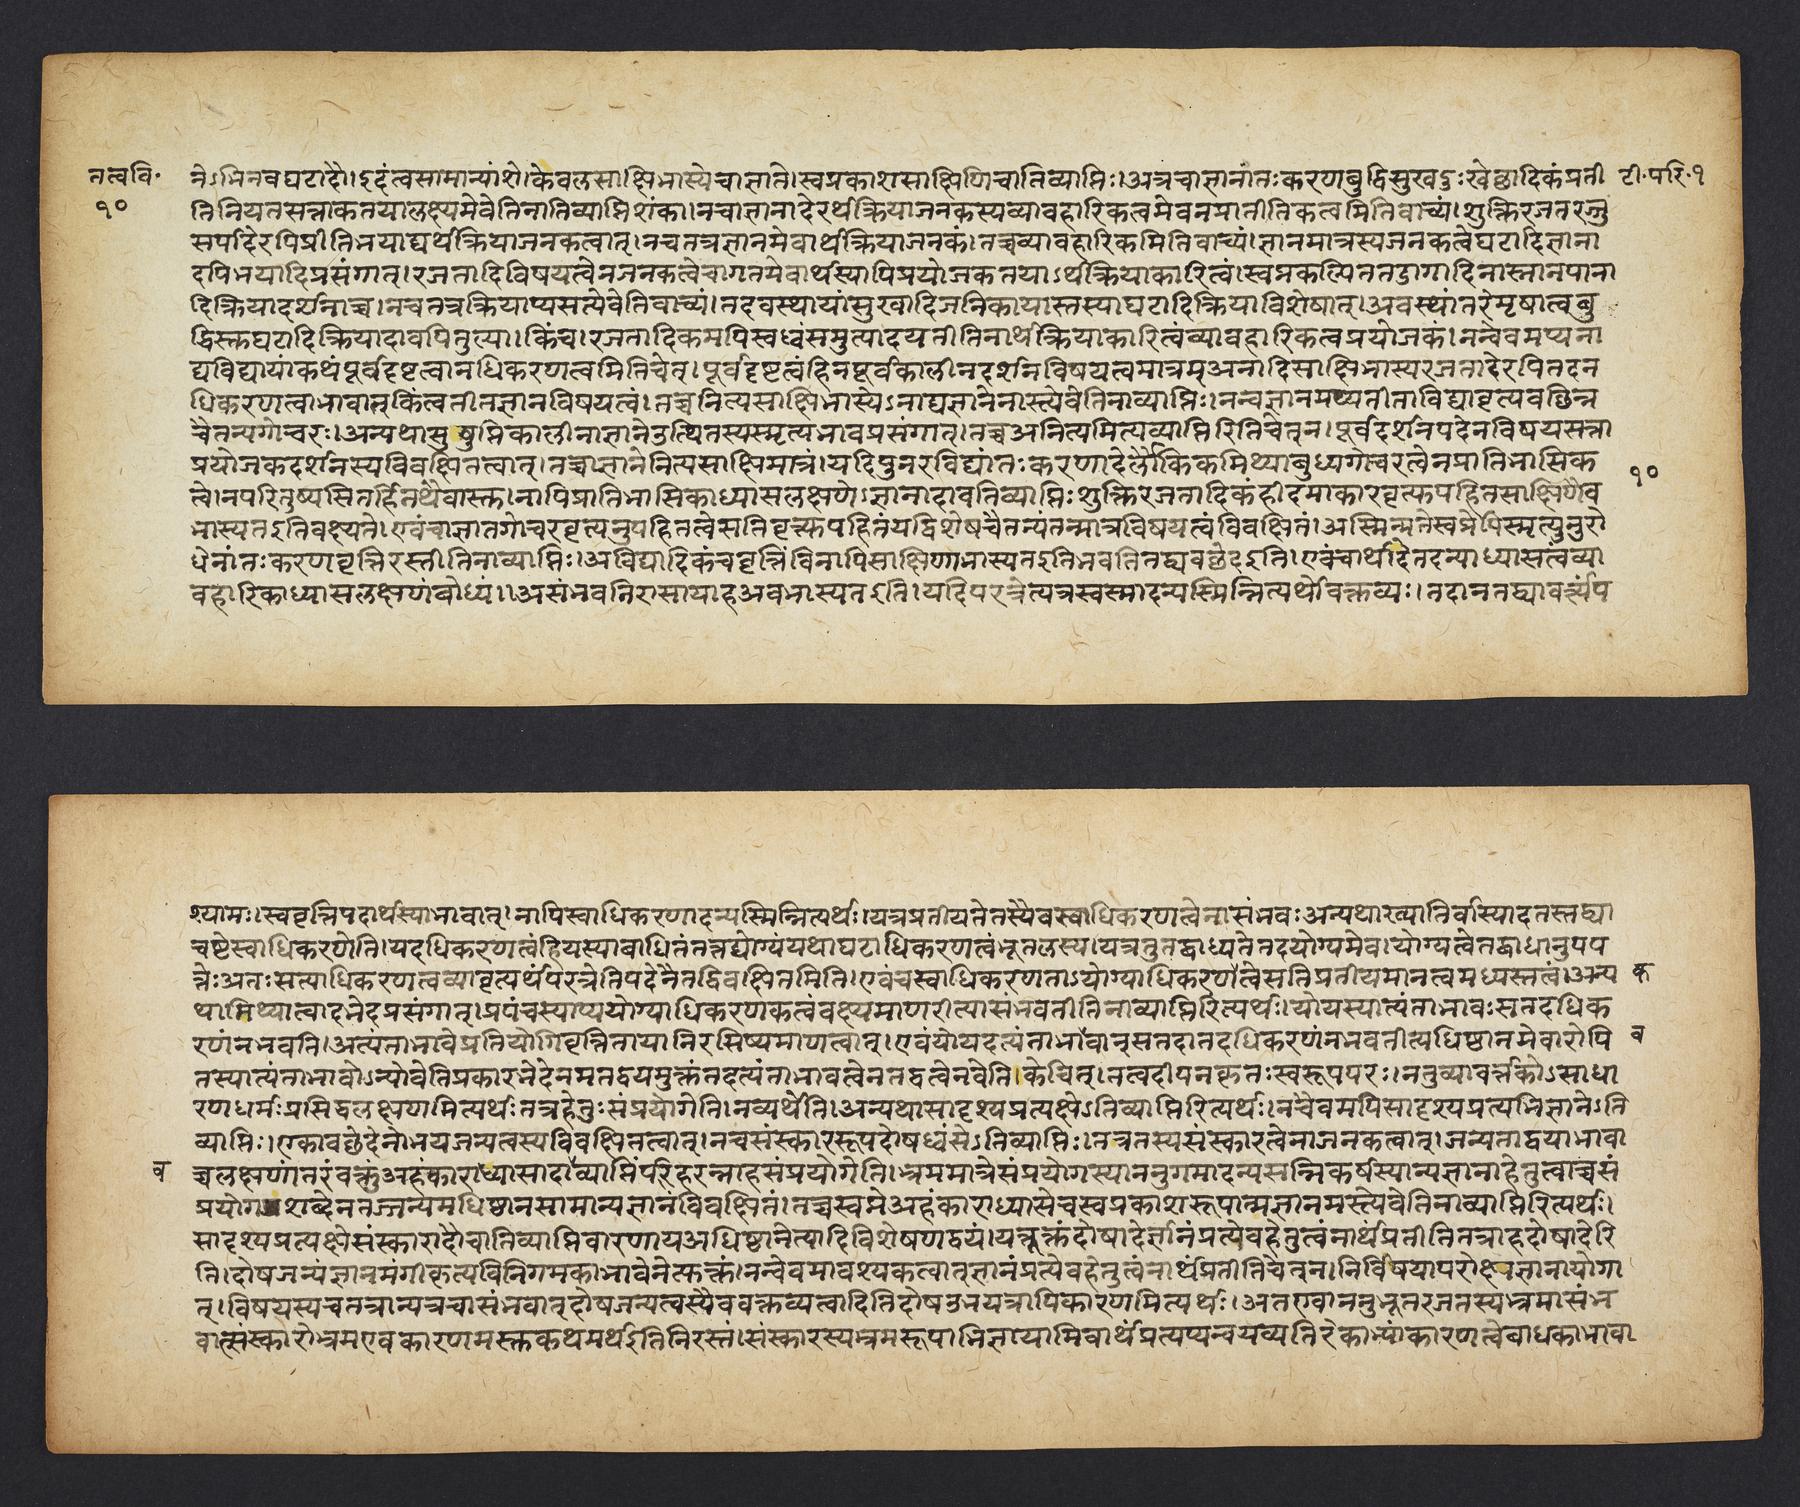 तत्ववि॰
१०
टी॰परि॰१
नेऽभिनवघटादौ।इदंत्वसामान्यांशे।केवलसाक्षिभास्येचाज्ञाने।स्वप्रकाशसाक्षिणिचातिव्याप्तिः।अत्रचाज्ञानांतःकरणबुद्धिसुखदुःखेछादिकंप्रती
तिनियतसत्ताकतयालक्ष्यमेवेतिनातिव्याप्तिशंका।नचाज्ञानादेरर्थक्रियाजनकस्यव्यावहारिकत्वमेवनप्रातीतिकत्वमितिवाच्यं।शुक्तिरजतरज्जु
सर्पादेरपिप्रीतिभयाद्यर्थक्रियाजनकत्वात्।नचतत्रज्ञानमेवार्थक्रियाजनकं।तच्चव्यावहारिकमितिवाच्यं।ज्ञानमात्रस्यजनकत्वेघटादिज्ञाना
दपिभयादिप्रसंगात्।रजतादिविषयत्वेनजनकत्वेचागतमेवार्थस्यापिप्रयोजकतयाऽर्थक्रियाकारित्वं।स्वप्नकल्पिततडागादिनास्नानपाना
दिक्रियादर्शनाच्च।नचतत्रक्रियाप्यसत्येवेतिवाच्यं।तदवस्थायांसुखादिजनिकायास्तस्याघटादिक्रियाविशेषात्।अवस्थांतरेमृषात्वबु
द्धिस्तघटादिक्रियादावपितुल्या।किंच।रजतादिकमपिस्वध्वंसमुत्पादयतीतिनार्थक्रियाकारित्वंव्यावहारिकत्वप्रयोजकं।नन्वेवमप्यना
द्यविद्यायांकथंपूर्वदृष्टत्वानधिकरणत्वमितिचेत्।पूर्वदृष्टत्वंहिनपूर्वकालीनदर्शनविषयत्वमात्रम्अनादिसाक्षिभास्यरजतादेरपितदन
धिकरणत्वाभावात्किंत्वतीतज्ञानविषयत्वं।तच्चनित्यसाक्षिभास्येऽनाद्यज्ञानेनास्त्येवेतिनाव्याप्तिः।नन्वज्ञानमप्यतीताविद्यावृत्यवछिन्न
चैतन्यगोचरः।अन्यथासुषुप्तिकालीनाज्ञानेउत्थितस्यस्मृत्यभावप्रसंगात्।तच्चअनित्यमित्यव्याप्तिरितिचेत्न।पूर्वदर्शनपदेनविषयसत्ता
प्रयोजकदर्शनस्यविवक्षितत्वात्।तच्चाज्ञानेनित्यसाक्षिमात्रं।यदिपुनरविद्यांतःकरणादेर्लौकिकमिथ्याबुध्यगोचरत्वेनप्रातिभासिक
१०
त्वे।नपरितुष्यसितर्हितथैवास्त।नापिप्रातिभासिकाध्यासलक्षणे।ज्ञानादावतिव्याप्तिःशुक्तिरजतादिकंहीदमाकारवृत्त्यपहितसाक्षिणैव
भास्यतइतिवक्ष्यते।एवंचाज्ञातगोचरवृत्यनुपहितत्वेसतिवृत्त्यपहितंयद्विशेषचैतन्यंतन्मात्रविषयत्वंविवक्षितं।अस्मिन्मतेस्वप्नेपिस्मृत्युनुरो
धेनांतःकरणवृत्तिरस्तीतिनाव्याप्तिः।अविद्यादिकंचवृत्तिंविनापिसाक्षिणाभास्यतइतिभवतितद्व्यवछेदइति।एवंचार्थादितदन्याध्यासत्वंव्या
वहारिकाध्यासलक्षणंबोध्यं।।असंभवनिरासायाहअवभास्यतइति।यदिपरत्रेत्यत्रस्वस्मादन्यस्मिन्नित्यर्थोवक्तव्यः।तदानतद्व्यावर्त्यंप
श्यामः।स्ववृत्तिपदार्थस्याभावात्।नापिस्वाधिकरणादन्यस्मिन्नित्यर्थः।यत्रप्रतीयतेतस्यैवस्वाधिकरणत्वेनासंभवःअन्यथाख्यातिर्वास्यादतस्तद्व्या
चष्टेस्वाधिकरणेति।यदधिकरणत्वंहियस्याबाधितंतत्तद्योग्यंयथाघटाधिकरणत्वंभूतलस्य।यत्रतुतद्बाध्यतेतदयोग्यमेव।योग्यत्वेतद्बाधानुपप
त्तेःअतःसत्याधिकरणत्वव्यावृत्यर्थंपरत्रेतिपदेनैतद्विवक्षितमिति।एवंचस्वाधिकरणताऽयोग्याधिकरणत्वेसतिप्रतीयमानत्वमध्यस्तत्वं।अन्य
क
थामिथ्यात्वादभेदप्रसंगात्।प्रपंचस्याप्ययोग्याधिकरणकत्वंवक्ष्यमाणरीत्यासंभवतीतिनाव्याप्तिरित्यर्थः।योयस्यात्यंताभावःसतदधिक
रणंनभवति।अत्यंताभावेप्रतियोगिवृत्तितायानिरसिष्यमाणत्वात्।एवंयोयदत्यंताभावान्सतदातदधिकरणंनभवतीत्यधिष्ठानमेवारोपि
व
तस्यात्यंताभावोऽन्योवेतिप्रकारभेदेनमतद्वयमुक्तंतदत्यंताभावत्वेनतद्वत्वेनवेति।केचित्।तत्वदीपनकृतःस्वरूपपरः।नतुव्यावर्त्तकोऽसाधा
रणधर्मःप्रसिद्धलक्षणमित्यर्थःतत्रहेतुःसंप्रयोगेति।नव्यर्थेति।अन्यथासादृश्यप्रत्यक्षेऽतिव्याप्तिरित्यर्थः।नचैवमपिसादृश्यप्रत्यभिज्ञानेऽति
व्याप्तिः।एकावछेदेनोभयजन्यत्वस्यविवक्षितत्वात्।नचसंस्काररूपदोषध्वंसेऽतिव्याप्तिः।तत्रतस्यसंस्कारत्वेनाजनकत्वात्।जन्यताद्वयाभावा
व
च्चलक्षणांतरंवक्तुंअहंकाराध्यासादाव्याप्तिंपरिहरन्नाहसंप्रयोगेति।भ्रममात्रेसंप्रयोगस्याननुगमादन्यसन्निकर्षस्यान्यज्ञानाहेतुत्वाच्चसं
प्रयोगशब्देनतज्जन्यमधिष्ठानसामान्यज्ञानंविवक्षितं।तच्चस्वमेअहंकाराध्यासेचस्वप्रकाशरूपात्मज्ञानमस्त्येवेतिनाव्याप्तिरित्यर्थः।
सादृश्यप्रत्यक्षेसंस्कारादौचातिव्याप्तिवारणायअधिष्ठानेत्यादिविशेषणद्वयं।यत्तूक्तंदोषादेर्ज्ञानंप्रत्येवहेतुत्वंनार्थंप्रतीतितत्राहदोषादेरि
ति।दोषजन्यंज्ञानमंगीकृत्यविनिगमकाभावेनेत्युक्तं।नन्वेवमावश्यकत्वात्ज्ञानंप्रत्येवहेतुत्वंनार्थंप्रतीतिचेत्न।निर्विषयापरोक्षज्ञानायोगा
त्।विषयस्यचतत्रान्यत्रचासंभवात्दोषजन्यत्वस्यैववक्तव्यत्वादितिदोषउभयत्रापिकारणमित्यर्थः।अतएवाननुभूतरजतस्यभ्रमासंभ
वात्संस्कारोभ्रमएवकारणमस्तकथमर्थइतिनिरस्तं।संस्कारस्यभ्रमरूपाभिज्ञायामिवार्थंप्रत्यप्यन्वयव्यतिरेकाभ्यांकारणत्वेबाधकाभावा